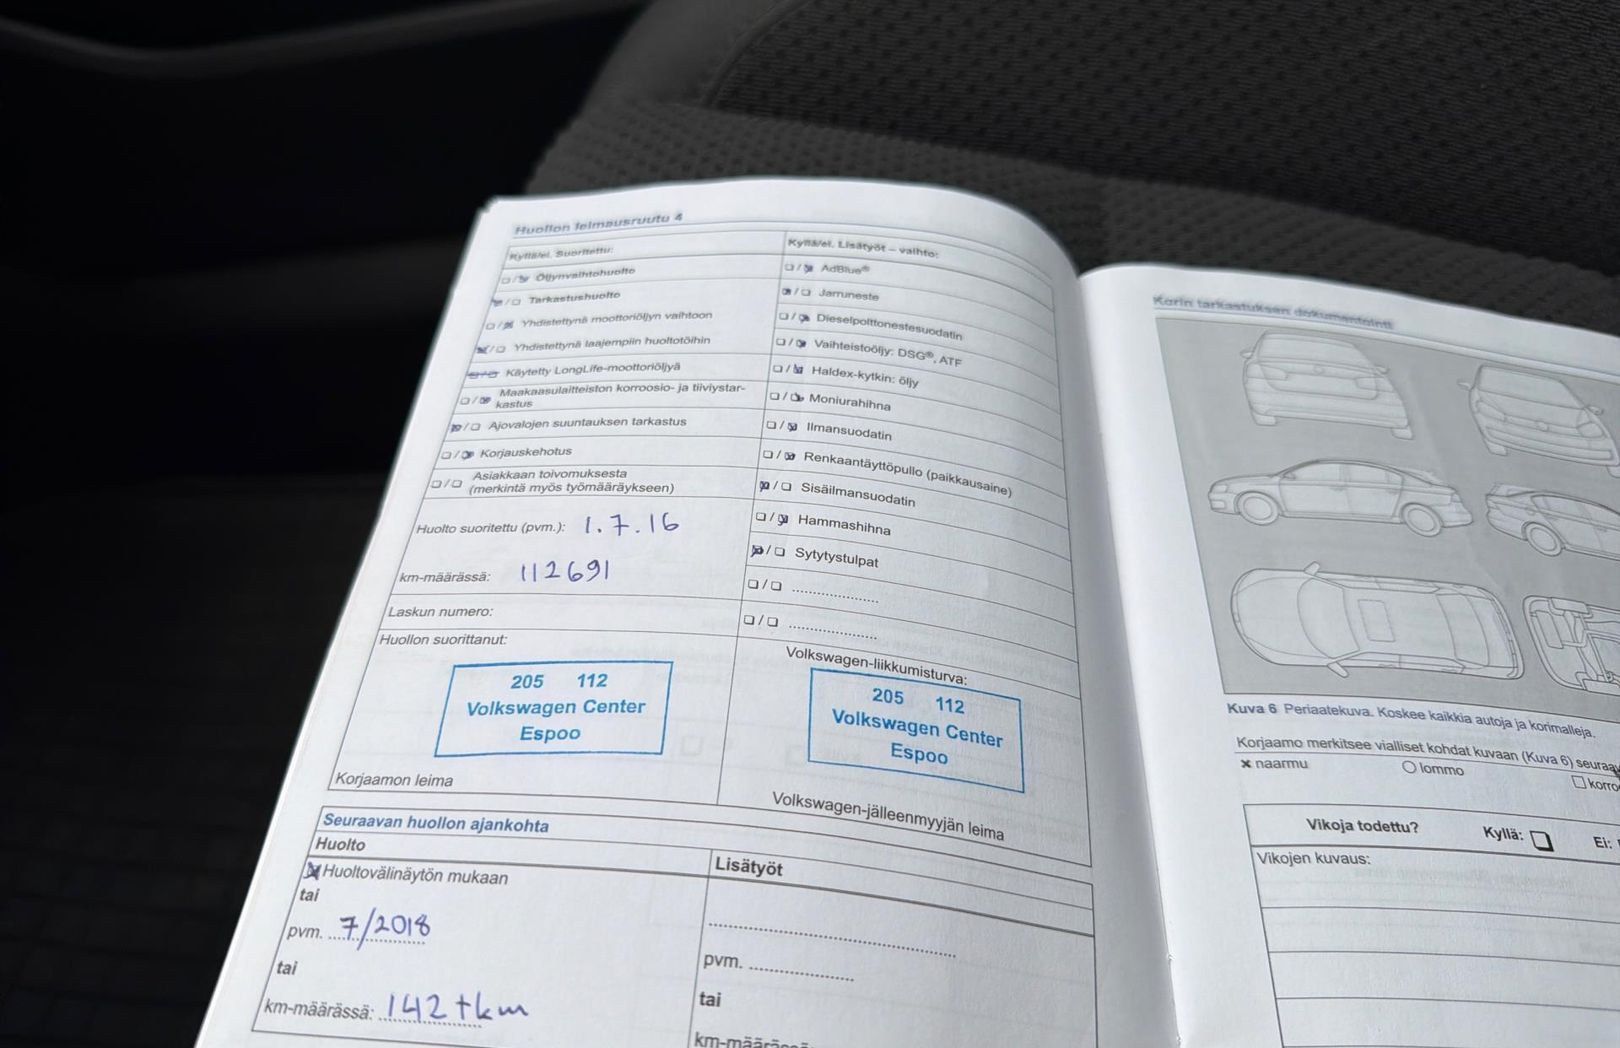 Huollon leimausruutu 4
Kyllä/ei. Suoritettu:
Öljynvaihtohuolto
Tarkastushuolto
Yhdistettynä moottoriöljyn vaihtoon
Yhdistettynä laajempiin huoltotöihin
Käytetty LongLife-moottoriöljyä
Maakaasulaitteiston korroosio- ja tiiviystar-
kastus
Ajovalojen suuntauksen tarkastus
Korjauskehotus
Asiakkaan toivomuksesta
(merkintä myös työmääräykseen)
Huolto suoritettu (pvm.): 1.7.16
km-määrässä: 112691
Laskun numero:
Huollon suorittanut:
205 112
Volkswagen Center
Espoo
Korjaamon leima
Kyllä/ei. Lisätyöt – vaihto:
AdBlue®
Jarruneste
Dieselpolttonestesuodatin
Vaihteistoöljy: DSG®, ATF
Haldex-kytkin: öljy
Moniurahihna
Ilmansuodatin
Renkaantäyttöpullo (paikkausaine)
Sisäilmansuodatin
Hammashihna
Sytytystulpat
Volkswagen-liikkumisturva:
205 112
Volkswagen Center
Espoo
Volkswagen-jälleenmyyjän leima
Seuraavan huollon ajankohta
Huolto
Huoltovälinäytön mukaan
tai
pvm. 7/2018
tai
km-määrässä: 142 tkm
Lisätyöt
pvm.
tai
km-määrässä:
Korin tarkastuksen dokumentointi
Kuva 6 Periaatekuva. Koskee kaikkia autoja ja korimalleja.
Korjaamo merkitsee vialliset kohdat kuvaan (Kuva 6)
naarmu
lommo
Vikoja todettu? Kyllä: Ei:
Vikojen kuvaus: